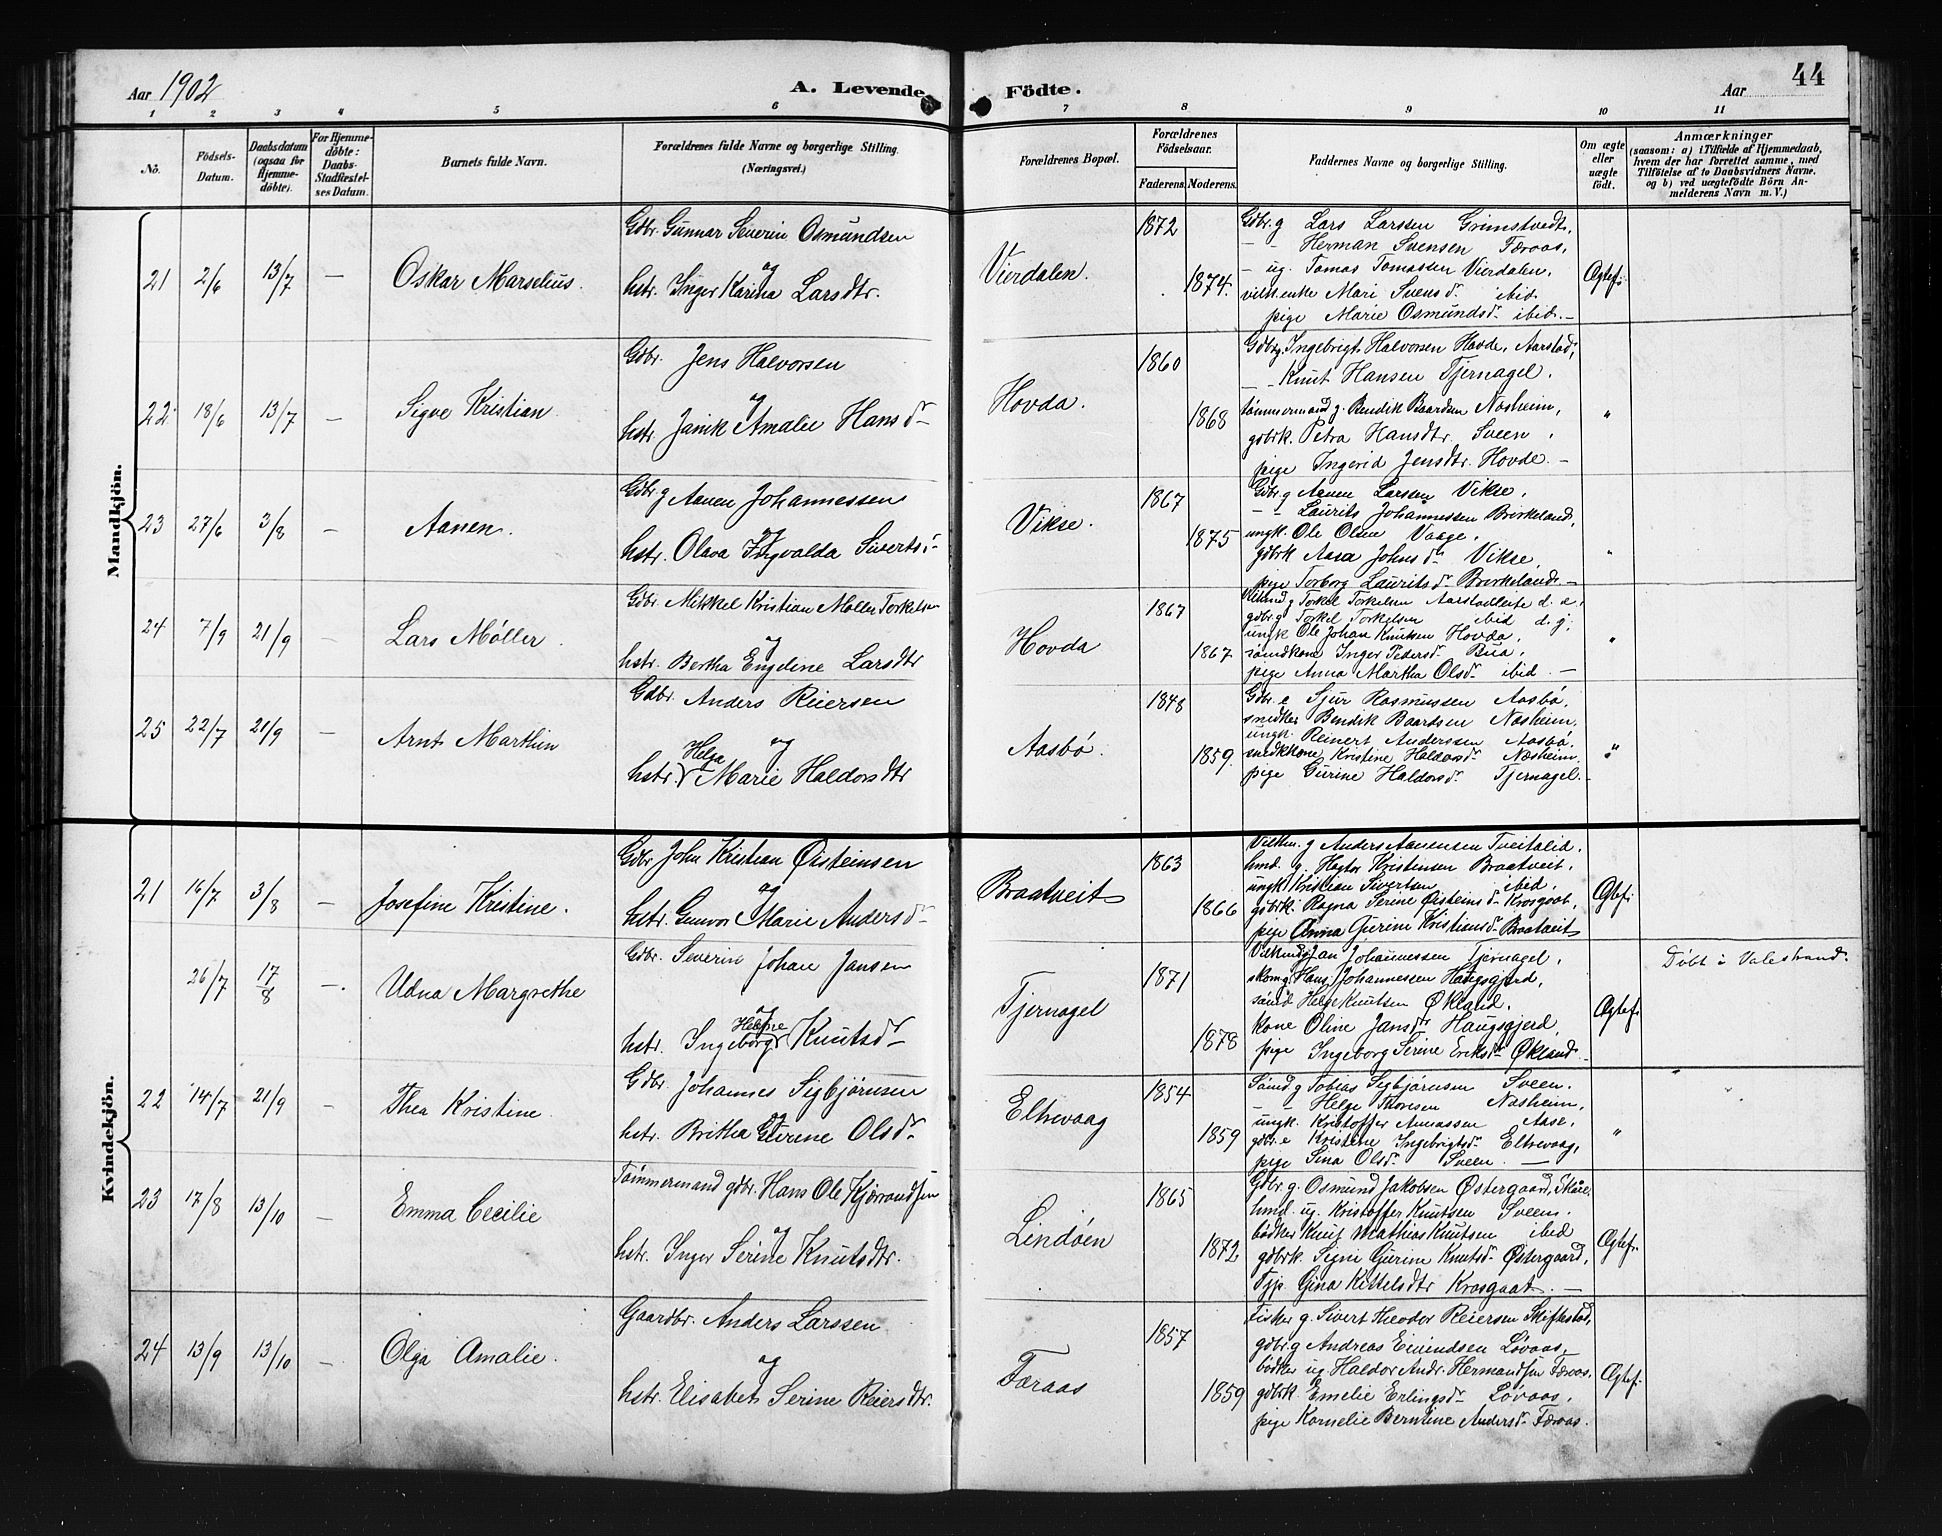 Aar 1902
A. Levende Födte.
Aar
44
1 2 3 4 5 6 7 8 9 10 11
No.
Födsels-Datum.
Daabsdatum (ogsaa for Hjemme-döbte).
For Hjemme-döbte: Daabs-Stadfæstel-ses Datum.
Barnets fulde Navn.
Forældrenes fulde Navne og borgerlige Stilling. (Næringsvei.)
Forældrenes Bopæl.
Forældrenes Födselsaar.
Faderens. Moderens.
Faddernes Navne og borgerlige Stilling.
Om ægte eller uægte födt.
Anmærkninger
(saasom: a) i Tilfælde af Hjemmedaab, hvem der har forrettet samme, med Tilföielse af to Daabsvidners Navne, og b) ved uægtefödte Börn An-melderens Navn m. V.)
Mandkjön.
21 2/6 13/7 — Oskar Marselius.
Gdbr. Gunnar Severin Osmundsen
og
hstr. Inger Karina Larsdtr.
Vierdalen.
1872
1874.
Gdbr. g Lars Larssen Grimstvedt,
— - Herman Svensen Færaas,
— ug. Tomas Tomassen Vierdalen,
vilk.enke Mari Svensd. ibid.
pige Marie Osmundsd. ibid. —
Ægtef.
22 18/6 13/7 — Sigve Kristian
Gdbr. Jens Halvorsen
og
hstr. Janik Amalie Hansd.
Hovda.
1860
1868
Gdbrg. Ingebrigt Halvorsen Hovde, Aarstad,
— - Knut Hansen Tjernagel,
tømmermand g. Bendik Baardsen Næsheim,
gdbrk. Petra Hansdtr. Sveen,
pige Ingerid Jensdtr. Hovde. —
"
23 27/6 3/8 — Aanen.
Gdbr g Aanen Johannessen
og
hstr. Olava Ingvalda Siverts
Vikse.
1867
1875
Gdbr. g Aanen Larssen Vikse,
— - Laurits Johannessen Birkeland,
ungk. Ole Olsen Vaage,
gdbrk Aasa Johnsd. Vikse,
pige Torborg Lauritsd. Birkeland. —
"
24 7/9 21/9 — Lars Møller.
Gdbr. Mikkel Kristian Møller Torkelsen
og
hstr. Bertha Engeline Larsdtr
Hovda
1867
1867
g Torkel Torkelsen Aarstadleite d. e,
gdbr. g Torkel Torkelsen ibid d. y,
ungk Ole Johan Knutsen Hovda,
kone Inger Pedersd. Bua,
pige Anna Martha Olsd. ibid. —
"
25 22/7 21/9 — Arnt Marthin
Gdbr. Anders Reiersen
og
hstr. Helga Marie Haldorsdtr
Aasbø.
1848
1859.
Gdbr. e Sjur Rasmussen Aasbø,
snedker Bendik Baardsen Næsheim,
ungk. Reinert Anderssen Aasbø,
snedkkone Kristine Haldorsd. Næsheim,
pige Gurine Haldorsd. Tjernagel. —
"
Kvindekjön.
21 16/7 3/8 — Josefine Kristine.
Gdbr John Kristian Øisteinsen
og
hstr. Gunvor Marie Andersd.
Braatveit
1863
1866
Vilkm. g Anders Aanensen Tveitalid,
hmd. g. Kristensen Braatveit,
ungk Kristian Sivertsen ibid,
gdbrk. Ragna Serine Øisteinsd. Krosgaat,
pige Anna Gurine Kristiansd. Braatveit
Ægtef.
26/7 17/8 — Udna Margrethe
Gdbr. Severin Johan Jansen
og
hstr. Ingeborg Helene Knutsd.
Tjernagel
1871
1878
Vilkmd g Jan Johannessen Tjernagel,
skom g. Hans Johannessen Haugsgjerd,
Helge Knutsen Økland,
kone Oline Jansdr Haugsgjerd,
pige Ingeborg Serine Eriksd. Økland. —
Ægtef.
Døbt i Valestrand.
22 14/7 21/9 — Thea Kristine.
Gdbr Johannes Sigbjørnsen
og
hstr. Britha Gurine Olsd.
Eltrevaag
1854
1859
g Tobias Sigbjørnsen Sveen,
— - Helge Thoresen Næsheim,
ungk. Kristoffer Aanassen Aase,
gdbr. e Kristine Ingebrigtsd. Eltrevaag,
pige Sina Olsd. Sveen. —
"
23 17/8 13/10 — Emma Cecilie
Tømmermand gdbr. Hans Ole Kjørandsen
og
hstr. Inger Serine Knutsdtr.
Lindøen
1865
1872
Gdbr. g. Osmund Jakobsen Østergaard,
hmd. ug. Kristoffer Knutsen Sveen,
bødker Knut Mathias Knutsen ibid
gdbrk. Signi Gurine Knutsd. Østergaard,
Tjp. Gina Kittelsdtr Krosgaat. —
Ægtef.
24 13/9 13/10 — Olga Amalie.
Gaardbr. Anders Larssen
og
hstr. Elisabet Serine Reiersdtr.
Færaas
1857
1859
Fisker g. Sivert Theodor Reiersen Skiftestad,
gdbr. g Andreas Eivindsen Løvaas,
bødker ug Haldor Andr. Hermandsen Færaas,
gdbrk. Emelie Erlingsd. Løvaas,
pige Kornelie Berntine Andersd. Færaas.
Ægtef.